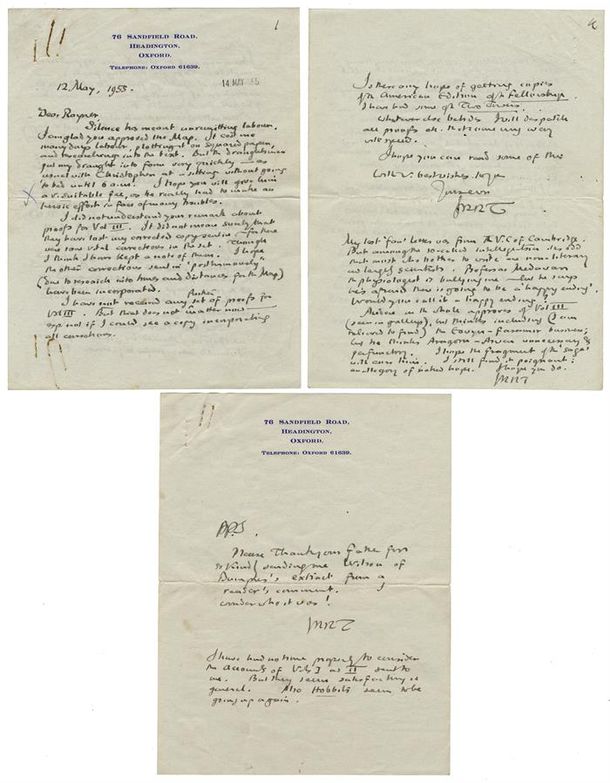 1
76 Sandfield Road,
Headington,
Oxford.
Telephone: Oxford 61639.
12 May, 1955.
14 MAY 55
Dear Rayner
Silence has meant unremitting labour.
I am glad you approved the Map. It cost me
many days labour, plotting it on squared paper,
and to the text. But the draughtsman
got my draught into form very quickly — as
usual with Christopher at a sitting without going
to bed until 6 a.m. I hope you will give him
a v. suitable fee, as he really had to make an
heroic effort in face of many troubles.
I did not understand your remark about
proofs for Vol III. It did not mean surely that
they have lost my corrected copy sent in — for there
was some vital corrections in the set. Though
I think I have kept a note of them. I hope
the other corrections sent in 'posthumously'
(due to research into times and distances for the Map)
have been incorporated.
I have not received any further set of proofs for
Vol III. But that does not matter now —
not if I could see a copy incorporating
all corrections.
Is there any hope of getting copies
of the American Edition of the Fellowship.
I have had some of The Two Towers.
Whatever else betides I will despatch
all proofs etc. that come my way
with speed.
I hope you can read some of this
With v. best wishes to you
Yours ever
JRRT
My last 'fan' letter was from the V.C. of Cambridge.
But amongst the so-called intelligentsia it is odd
that most who bother to write are non-literary
and largely scientists. Professor Medawar
the physiologist is bullying me — but he says
he's afraid there is going to be a 'happy ending'.
Would you call it a happy ending?
on the whole approves of Vol III
(seen in galleys), but thinks (including I am
relieved to find) the Eowyn-Faramir business;
but he thinks Aragorn–Arwen unnecessary &
perfunctory. I hope the fragment of the 'saga'
will cure him. I still find it poignant:
an allegory of naked hope. I hope you do.
JRRT
76 Sandfield Road,
Headington,
Oxford.
Telephone: Oxford 61639.
PPS.
Please thank your father for
so kindly sending me Wilson of
Bumpus's extract from a
reader's comment. I
wonder who it was!
JRRT
I have had no time properly to consider
the accounts of Vols I and II sent to
me. But they seem satisfactory in
general. Also Hobbits seem to be
going up again.